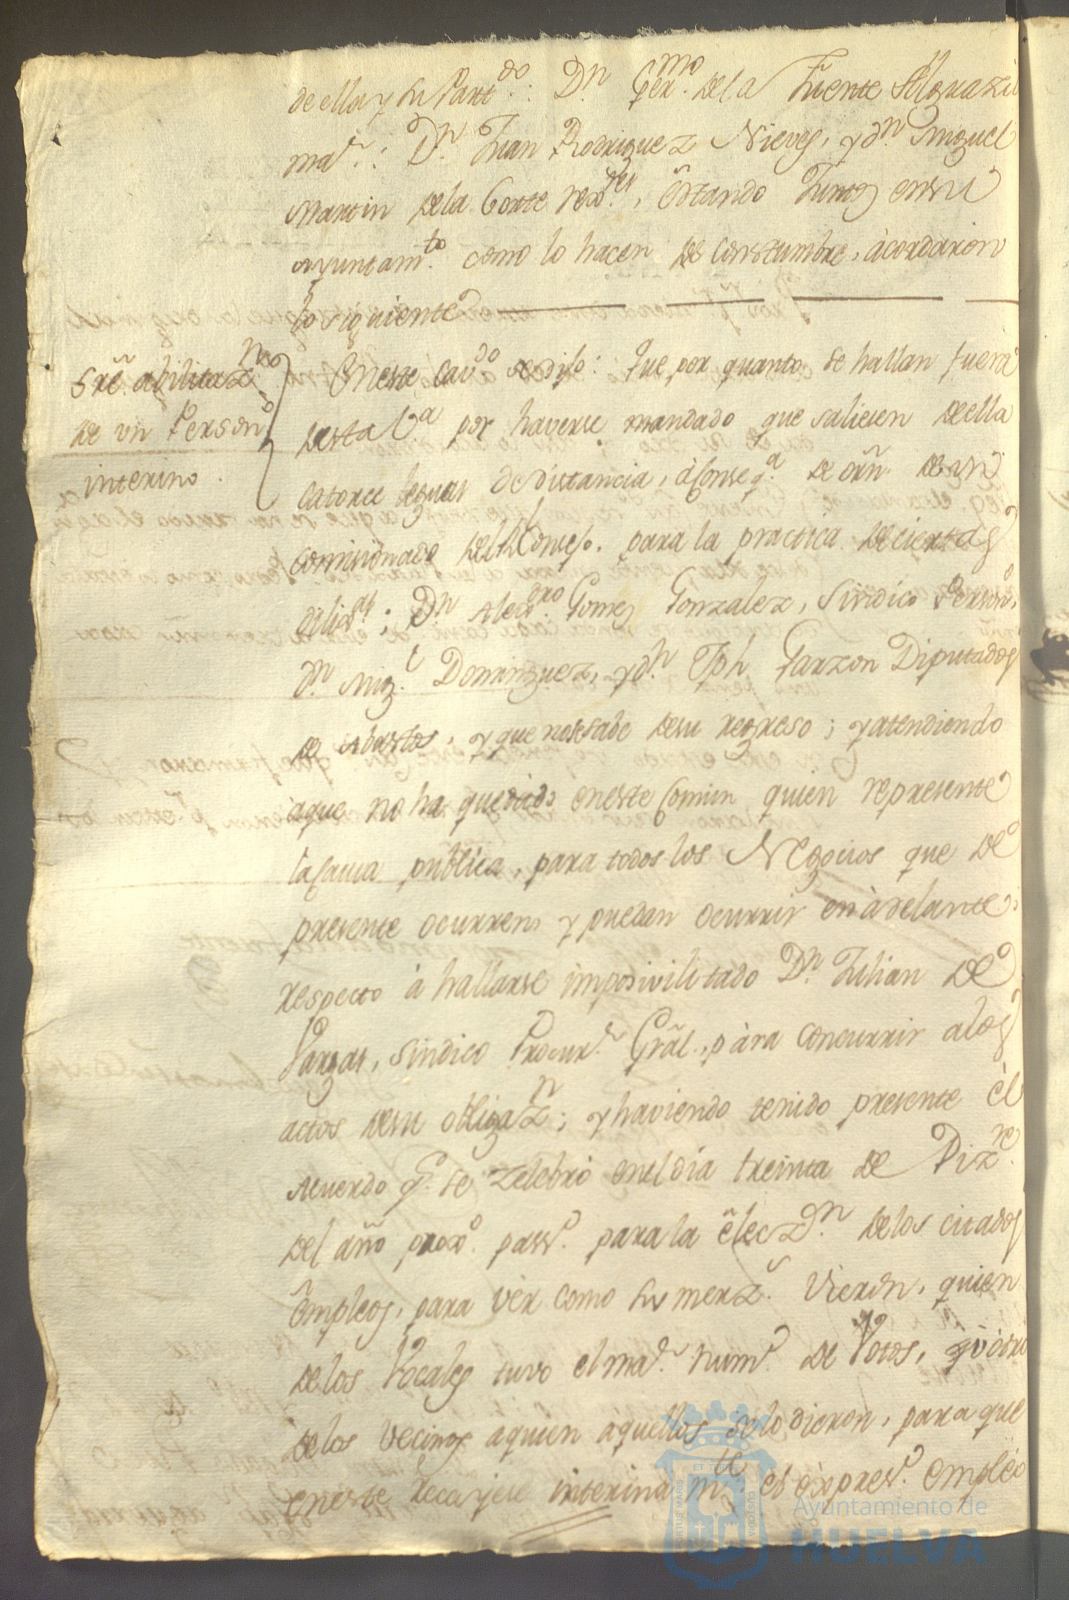 de ella y su Part.do: Dn. Ger.mo de la Fuente Alguazil
mar.: Dn. Juan Rodriguez Nieves, y dn. Miguel
Martin de la Corte rexres., estando juntos en su
ayuntam.to como lo hacen de constumbre, acordaron
lo siguiente
Sre. abilitazn.
de un Person.o
interino.
En este cavdo. se dijo: Que por quanto se hallan fuera
desta Va. por haverse mandado que saliesen de ella
catorce leguas de distancia, à conseqa. de orn. de un
comisionado del Rl. Consejo. para la practica de ciertas
dilig.as; Dn. Alexdro Gomez Gonzalez, Sindico Person.o,
Dn. Mig.l Dominguez, y dn. Jph. Garzon Diputados
de Abastos, y que no se sabe de su regreso; y atendiendo
aque no ha quedado en este comun quien represente
la causa publica, para todos los Negocios que de
presente ocurren, y puedan ocurrir en àdelante,
respecto à hallarse imposivilitado Dn. Julian de
Vargas, Sindico Procur.r Gral., pàra concurrir alos
actos de su obligazn.; y haviendo tenido presente èl
Acuerdo q.e se zelebrò enel dia treinta de Dizre.
del año proxo. passo. para la èleczn. de los citados
èmpleos, para vèr como sus merz.s vieron, quien
de los Vocales tuvo el mar. numo. de Votos,
de los Vecinos aquien aquellos se lo dieron, para que
en este recayese interinamte. el èxpreso. empleo
Ayuntamiento de
HUELVA